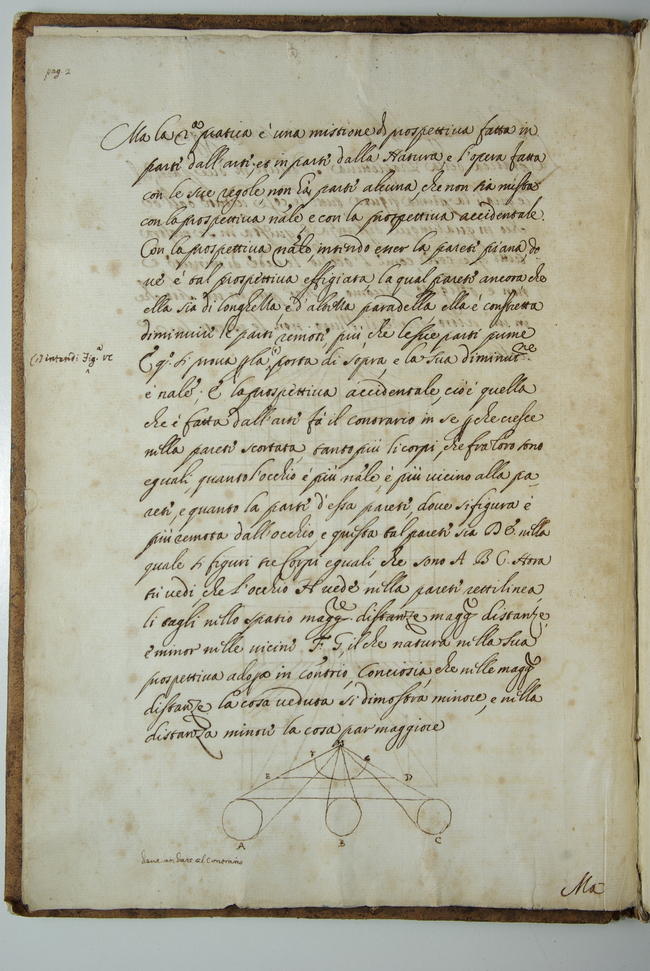 pag. 2
Ma la 2.da pratica è una mistione di prospettiva fatta in
parte dall'arte, et in parte dalla Natura, e l'opera fatta
con le sue regole, non hà parte alcuna, che non sia mista
con la prospettiva n'ale, e con la prospettiva accidentale.
Con la prospettiva n'ale, intendo esser la parete piana, do
ve è tal prospettiva effigiata, la qual parete ancora che
ella sia di longhezza, e d'altezza paradella ella è constretta
diminuire le parti remote più che le sue parti prime
E q.o si prova p la (1) porta di sopra, e la sua diminut.ne
(1) intendi Fig.a VI
è n'ale; E la prospettiva accidentale, cioè quella
che è fatta dall'arte fà il contrario in se p che cresce
nella parete scortata, tanto più li corpi, che fra loro sono
eguali, quanto l'occhio è più n'ale, è più vicino alla pa-
rete, e quanto la parte d'essa parete, dove si figura è
più remota dall'occhio e questa tal parete sia D E. nella
quale si figure tre Corpi eguali, che sono A B C. Hora
tu vedi, che l'occhio H vede nella parete rettilinea
li tagli nello spatio magg.re distanze magg. distanze,
è minor nelle vicine F. G, il che natura nella sua
prospettiva adopa in contrio, Conciosia, che nelle magg.
distanze la cosa veduta si dimostra minore, e nella
distanza minore la cosa par maggiore
H
F G
E D
A B C
deve andare al contrario
Ma